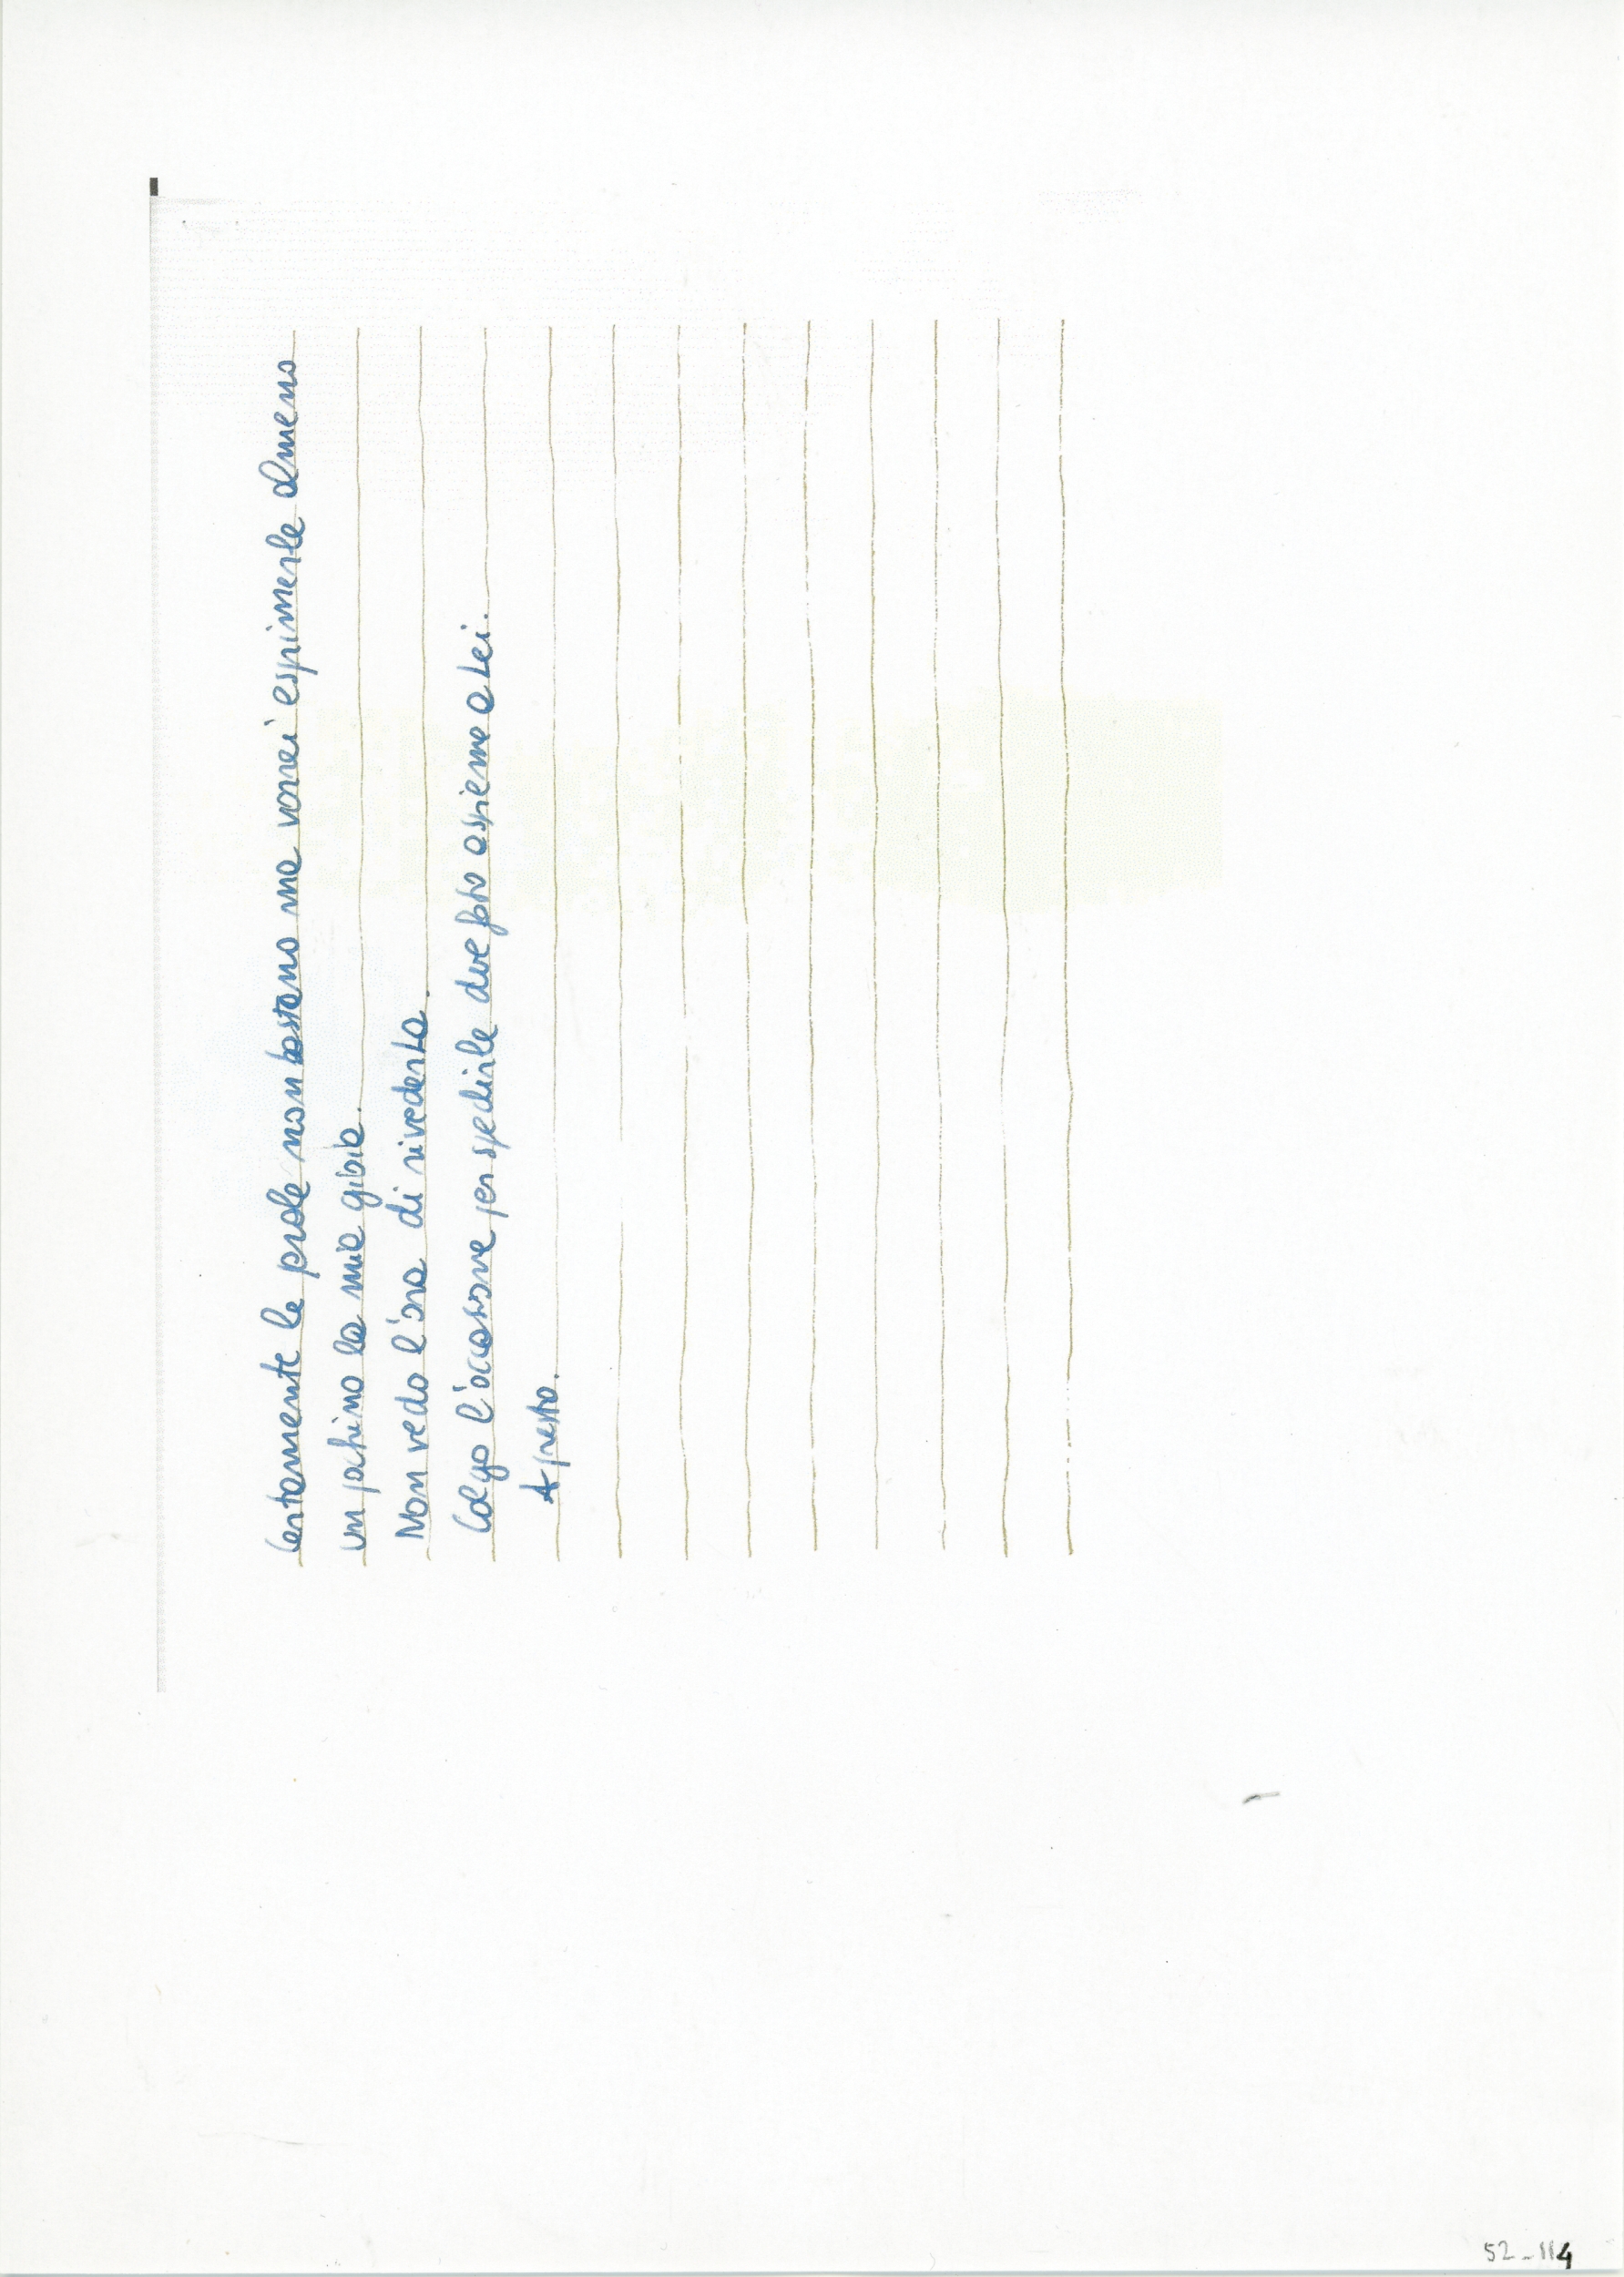 Certamente le prole non bastano ma vorrei esprimerle almeno
un pochino la mia gioia.
Non vedo l'ora di rivederLa.
Colgo l'occasione per spedirle due foto assieme a Lei.
A presto.
52-114